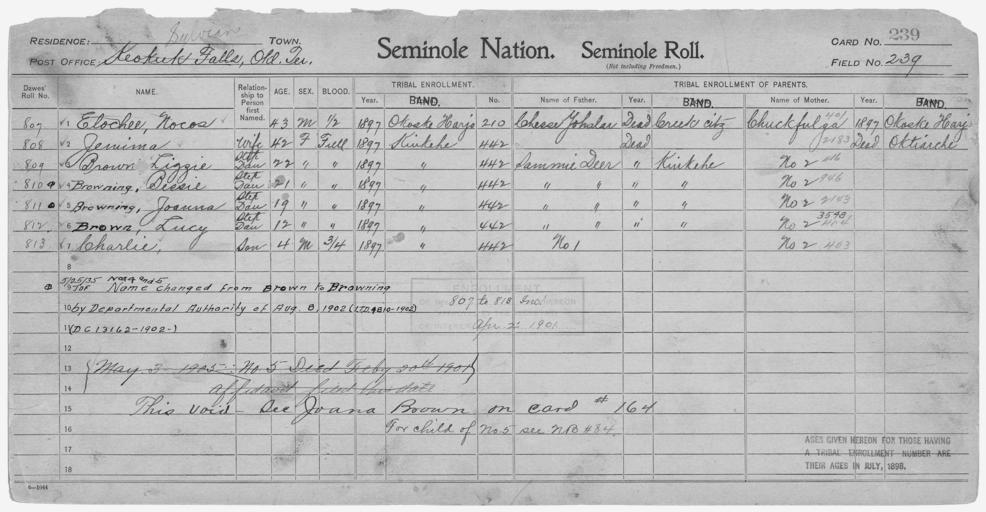 RESIDENCE: TOWN. Seminole Nation. Seminole Roll. CARD NO. 239
POST OFFICE Keokuk Falls, Okl. Ter. (Not including Freedmen.) FIELD NO. 239
Dawes' Roll No. NAME. Relationship to Person first Named. AGE. SEX. BLOOD. TRIBAL ENROLLMENT. Year. BAND. No. TRIBAL ENROLLMENT OF PARENTS. Name of Father. Year. BAND. Name of Mother. Year. BAND.
807 1 Elochee, Nocos 43 M 1/2 1897 Okoske Harjo 210 Chesse Yoholar Dead Creek city Chuckfulga 1897 Okoske Harjo
808 2 " Jemima Wife 42 F Full 1897 Kinkehe 442 Dead 2183 Dead Oktiarche
809 3 Brown, Lizzie Step Dau 22 " " 1897 " 442 Sammie Deer " Kinkehe No 2
810 4 Browning, Bessie Step Dau 21 " " 1897 " 442 " " " " No 2
811 5 Browning, Joanna Step Dau 19 " " 1897 " 442 " " " " No 2
812 6 Brown, Lucy Step Dau 12 " " 1897 " 442 " " " " No 2
813 7 Charlie, Son 4 M 3/4 1897 " 442 No 1 No 2 463
8
5/25/35 Nos 4 and 5
9 For Name changed from Brown to Browning
10 by Departmental Authority of Aug. 8, 1902 (I.T.D. 4810-1902) 807 to 818 Inc.
11 (D C 13162-1902-) Apr. 2 1901
12
13 May 3 - 1902: No 5 Died Feby 20th 1901
14 affidavit filed this date
15 This void - See Joana Brown on card # 164
16 For child of No 5 see NB #84.
17 AGES GIVEN HEREON FOR THOSE HAVING
A TRIBAL ENROLLMENT NUMBER ARE
18 THEIR AGES IN JULY, 1898.